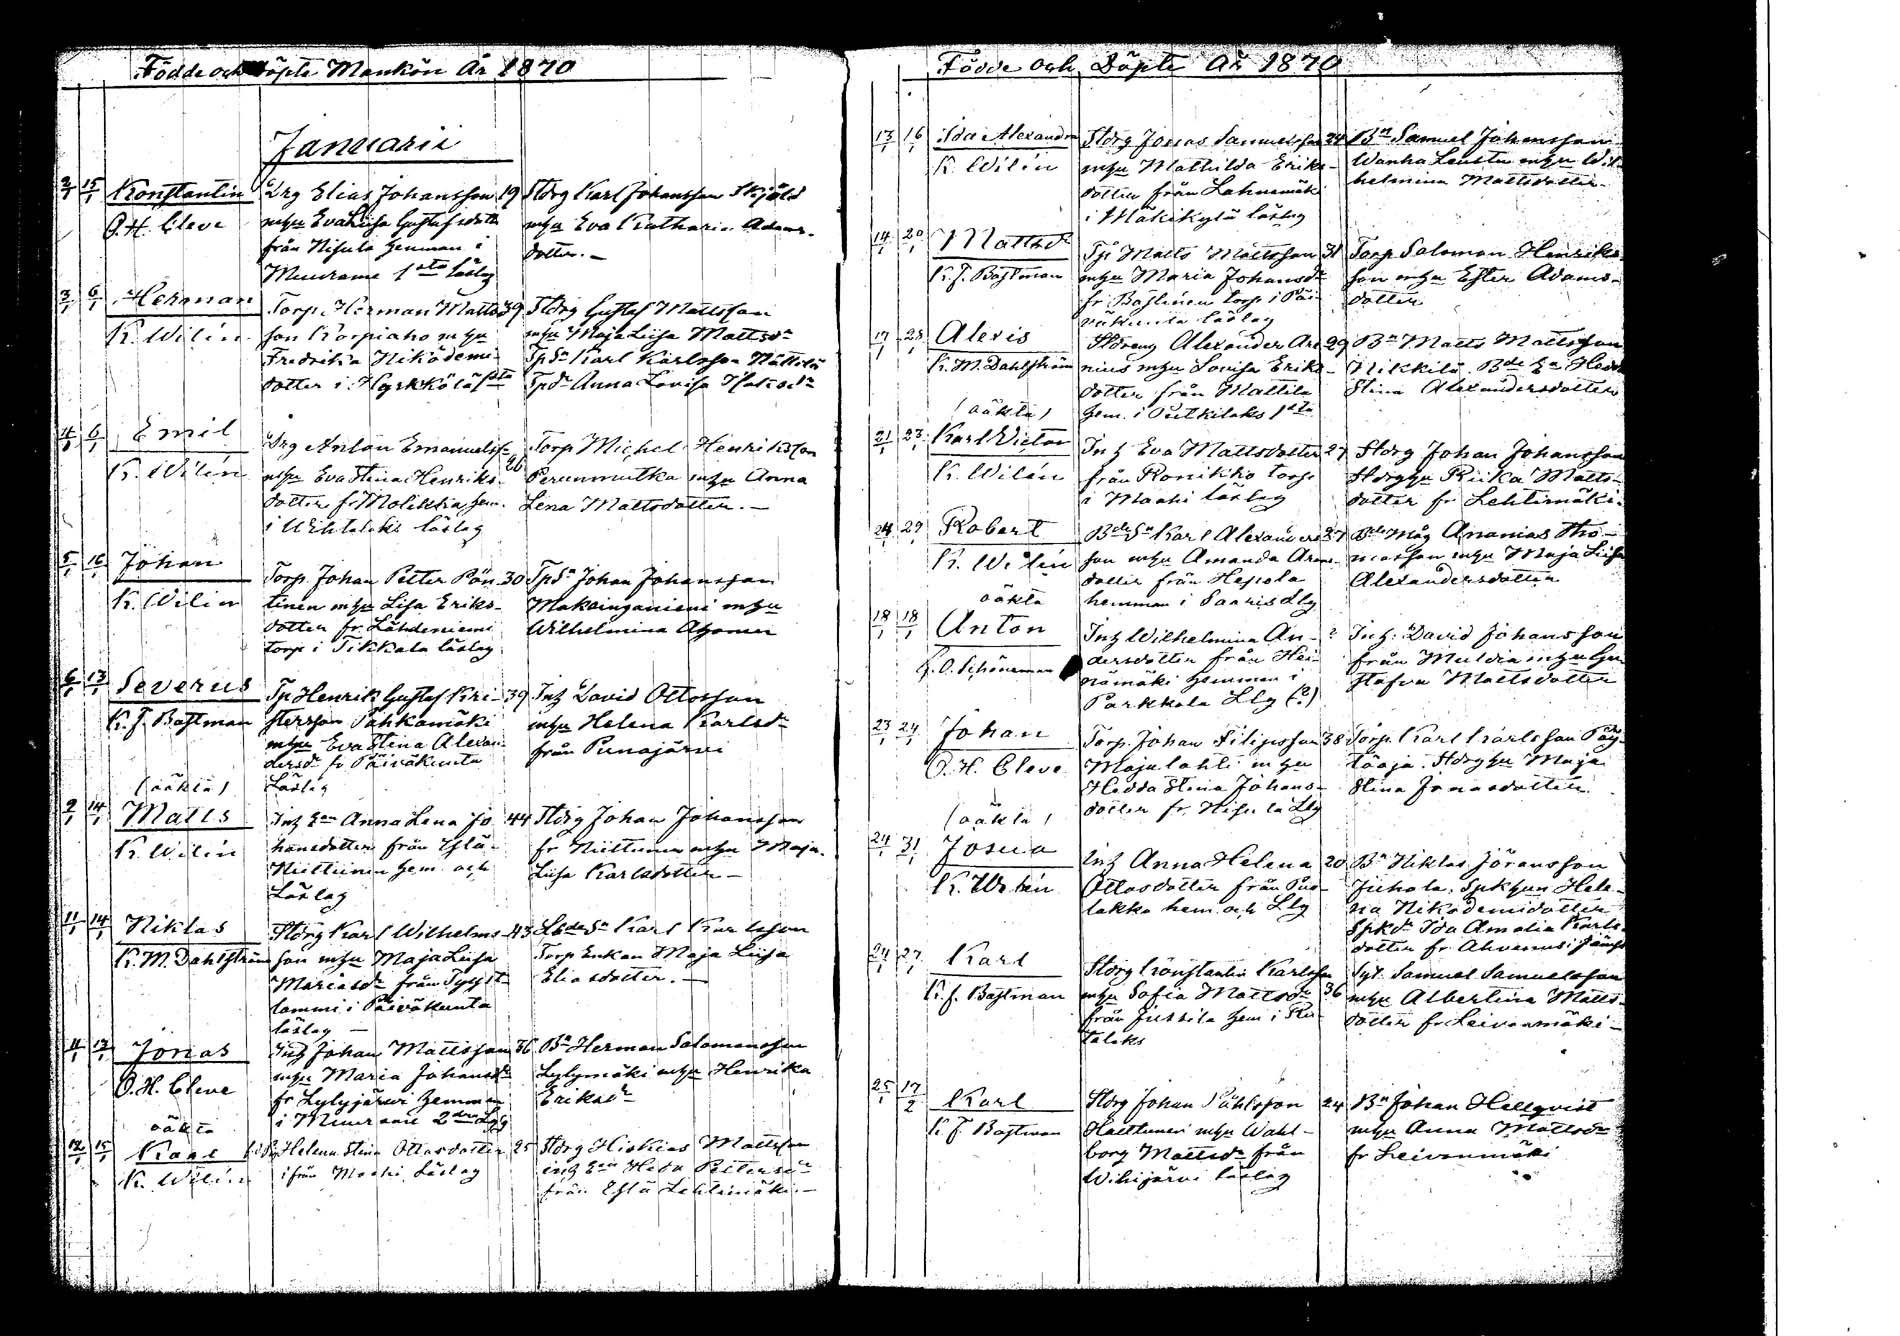 Födde och Döpte Mankön År 1870
Januarii
2/1 15/1 Konstantin
O.H. Cleve
Drg Elias Johansson 19
m hu Eva Lisa Gustafsdotter
från Nisula hemman i
Muurame 1sta läslag
Stdrg Karl Johansson Skjöld
m hu Eva Katharin Adams-
dotter.
3/1 6/1 Herman
K. Wilén
Torp. Herman Matts- 39
son Korpiaho m hu
Fredrika Nikodemi-
dotter i Hyrkkölä
Stdrg Gustaf Mattsson
m hu Maja Liisa Mattsdr
Tp Sn Karl Karlsson
Tpdr Anna Lovisa
4/1 6/1 Emil
K. Wilén
Drg Anton Emanuelss-
m hu Eva Stina Henriks-
dotter fr. hem.
i läslag
26
Torp Michel Henriksson
Perunmutka m hu Anna
Lena Mattsdotter.
5/1 16/1 Johan
K. Wilén
Torp. Johan Petter Pön- 30
tinen m hu Lisa Eriks-
dotter fr. Lähdeniemi
torp i Tikkala läslag
Tp Sn Johan Johansson
m hu
Wilhelmina
6/1 13/1 Severus
K.F. Bastman
Tp Henrik Gustaf Kri- 39
stersson Pahkamäki
m hu Eva Stina Alexan-
dersdr fr Päiväkunta
Läslag
Inh David Ottosson
m hu Helena Karlsdr
från Punajärvi
(oäkta)
9/1 14/1 Matts
K. Wilén
Inh Anna Lena Jo- 44
hansdotter från Yslä-
Niittunen hem. och
Läslag
Stdrg Johan Johansson
fr Niittunen m hu Maja
Liisa Karlsdotter
11/1 14/1 Niklas
K.M. Dahlström
Stdrg Karl Wilhelms- 43
son m hu Maja Liisa
från
lammi i Päiväkunta
läslag
Karl Karlsson
Torp Enkan Maja Liisa
Eliasdotter.
11/1 Jonas
O.H. Cleve
Inh Johan Mattsson 36
m hu Maria Johansdr
fr Lylyjärvi hemman
i Muurame 2dra Llg
Bn Herman Salomonsson
Lylymäki m hu Henrika
Eriksdr
oäkta
12/1 15/1 Karl
K. Wilén
Helena Stina Ottosdotter 25
ifrån Moahi Läslag
Stdrg Hiskias Mattsson
Heda
från Yslä Lehtimäki
Födde och Döpte År 1870
13/1 16/1 Ida Alexandra
K. Wilén
Stdrg Jonas Samuelsson 24
m hu Mathilda Eriks-
dotter från Lahnamäki
i Mäkikylä läslag
Bn Samuel Johansson
Wanha Leustu m hu Wil-
helmina Mattsdotter.
14/1 20/1
K.F. Bastman
Tp Matts Mattsson 31
m hu Maria Johansdr
fr torp i Päi-
väkunta läslag
Torp Salomon Henriks-
son m hu Ester Adams-
dotter
17/1 28/1 Alexis
K.M. Dahlström
Stdreng Alexander Are- 29
nius m hu Lovisa Eriks-
dotter från Mattila
hem. i Putkilaks 1sta
Bn Matts Mattsson
Nikkilä Bde En Hedda
Stina Alexandersdotter
(oäkta)
21/1 23/1 Karl Victor
K. Wilén
Inh Eva Mattsdotter 27
från Ronikko torp
i Moahi läslag
Stdrg Johan Johansson
Stdrghu Riika Matts-
dotter fr Lehtimäki.
24/1 29/1 Robert
K. Wilén
Bde Sn Karl Alexanders- 27
son m hu Amanda
dotter från
hemman i Saaris Llg
Bde Måg Ananias Tho-
masson m hu Maja Liisa
Alexandersdotter
oäkta
18/1 18/1 Anton
F.O. Schöneman
Inh Wilhelmina An- ?
dersdotter från Hei-
nämäki hemman i
Parkkola Llg (?)
Inh. David Johansson
från Muldia m hu Gu-
stafva Mattsdotter
23/1 24/1 Johan
O.H. Cleve
Torp. Johan Filipsson 38
Majulahti m hu
Hedda Stina Johans-
dotter fr. Nisula Llg
Torp Karl Karlsson Pöy-
tääjä. Stdrghu Maja
Stina Jonasdotter
(oäkta)
24/1 31/1 Josua
K. Wilén
Inh Anna Helena 20
Ottosdotter från Puo-
lakka hem. och Llg
Bn Niklas Jöransson
Juhola. Spkhun Hele-
na Nikodemidotter
Spkdr Ida Amalia Karls-
dotter fr Ahvenus i Jämsä
24/1 27/1 Karl
K.F. Bastman
Stdrg Konstantin Karlsson
m hu Sofia Mattsdr 36
från Jussila hem i Ru-
talaks
Syt. Samuel Samuelsson
m hu Albertina Matts-
dotter fr Leivonmäki
25/1 17/2 Karl
K.F. Bastman
Stdrg Johan Påhlsson 24
m hu Wahl-
borg Mattsdr från
Wihijärvi läslag
Bn Johan Hellqvist
m hu Anna Mattsdr
fr Leivonmäki